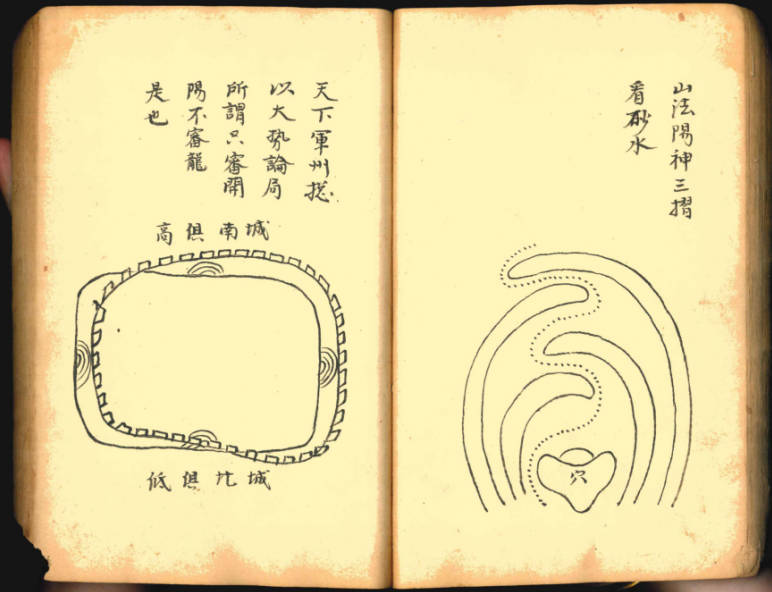 山法陽神三摺
看砂水
穴
天下軍州捴
以大勢論局
所謂只審開
陽不審龍
是也
高俱南城
低俱北城